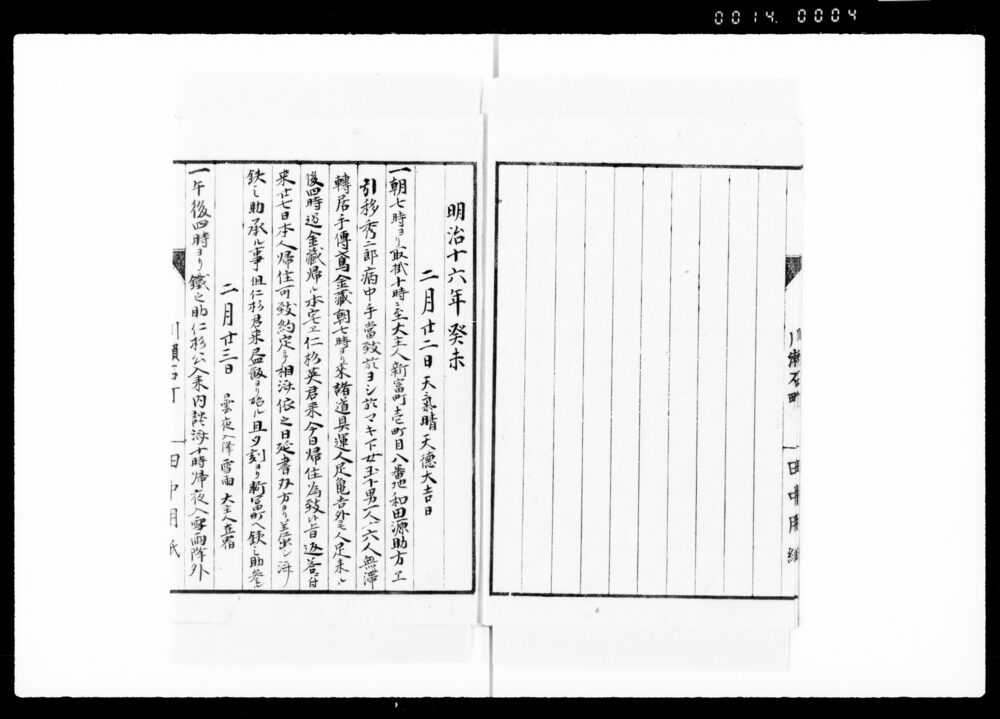 0014. 0004
明治十六年癸未
二月廿二日 天氣晴 天徳大吉日
一朝七時ヨリ取掛十時ニ至大主人新富町壱町目八番地和田源助方エ
引移秀二郎病中手當致於ヨシ於マキ下女玉下男一人〆六人無滞
轉居手傳鳶金藏朝七時ヨリ来諸道具運人足亀吉外ニ壱人足来ル
後四時過金藏帰ル本宅エ仁杉英君来今日帰住為致 旨返答 付
来廿七日本人帰住可致約定ニテ相済依之日延書 方ヨリ差出シ済
鉄之助承ル事但仁杉君来昼飯ヨリ 且夕刻ヨリ新富町ヘ鉄之助参ル
二月廿三日 曇夜ニ入降雪雨 大主人在宿
一午後四時ヨリ鐵之助仁杉公入来内談済十時帰夜入雪雨降外
川瀬石町 田中用紙